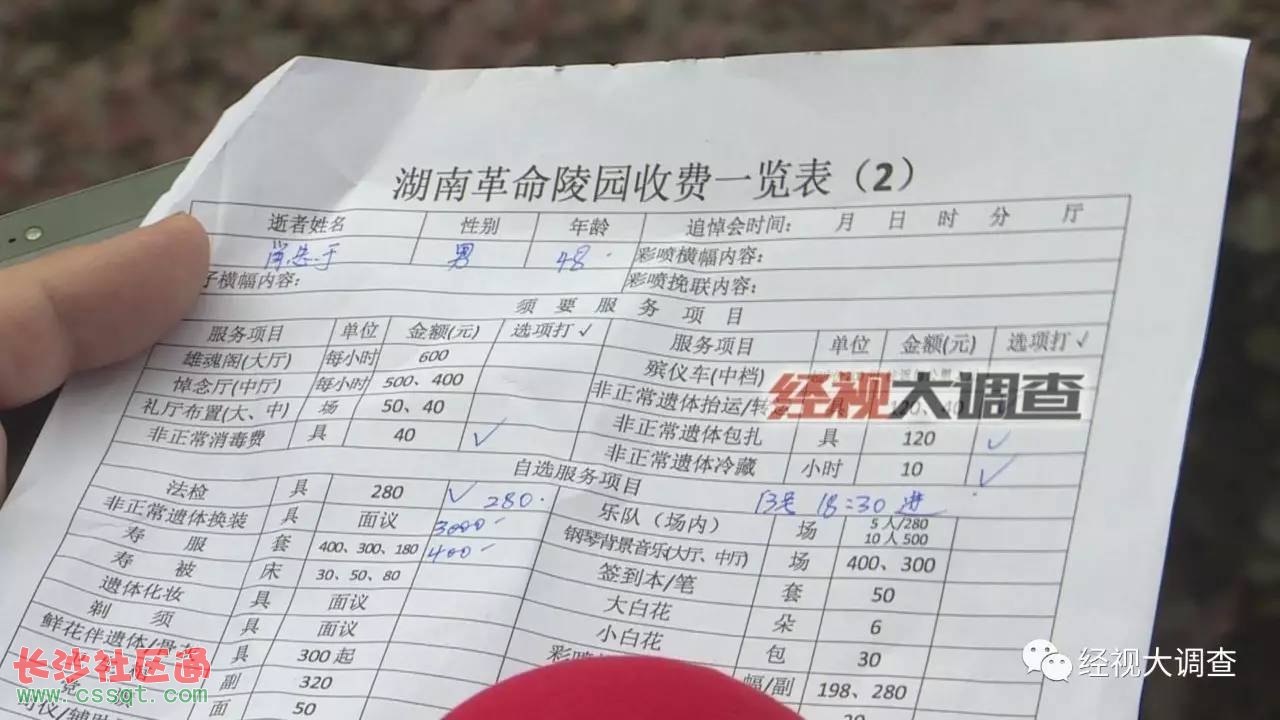 湖南革命陵园收费一览表（2）
逝者姓名 性别 年龄 追悼会时间： 月 日 时 分 厅
男 48 彩喷横幅内容：
子横幅内容： 彩喷挽联内容：
须要服务项目
服务项目 单位 金额(元) 选项打√ 服务项目 单位 金额(元) 选项打√
雄魂阁(大厅) 每小时 600 殡仪车(中档)
悼念厅(中厅) 每小时 500、400 非正常遗体抬运/
礼厅布置(大、中) 场 50、40 非正常遗体包扎 具 120 √
非正常消毒费 具 40 √ 非正常遗体冷藏 小时 10 √
自选服务项目 13号 18:30 进
法检 具 280 √ 280 乐队（场内） 场 5人/280 10人500
非正常遗体换装 具 面议 3000 钢琴背景音乐(大厅、中厅) 场 400、300
寿服 套 400、300、180 400 签到本/笔 套 50
寿被 床 30、50、80 大白花 朵 6
遗体化妆 具 面议 小白花 包 30
剃须 具 面议 彩喷 幅/副 198、280
鲜花伴遗体/ 具 300起
副 320
面 50
经视大调查
经视大调查
长沙社区通
www.cssqt.com